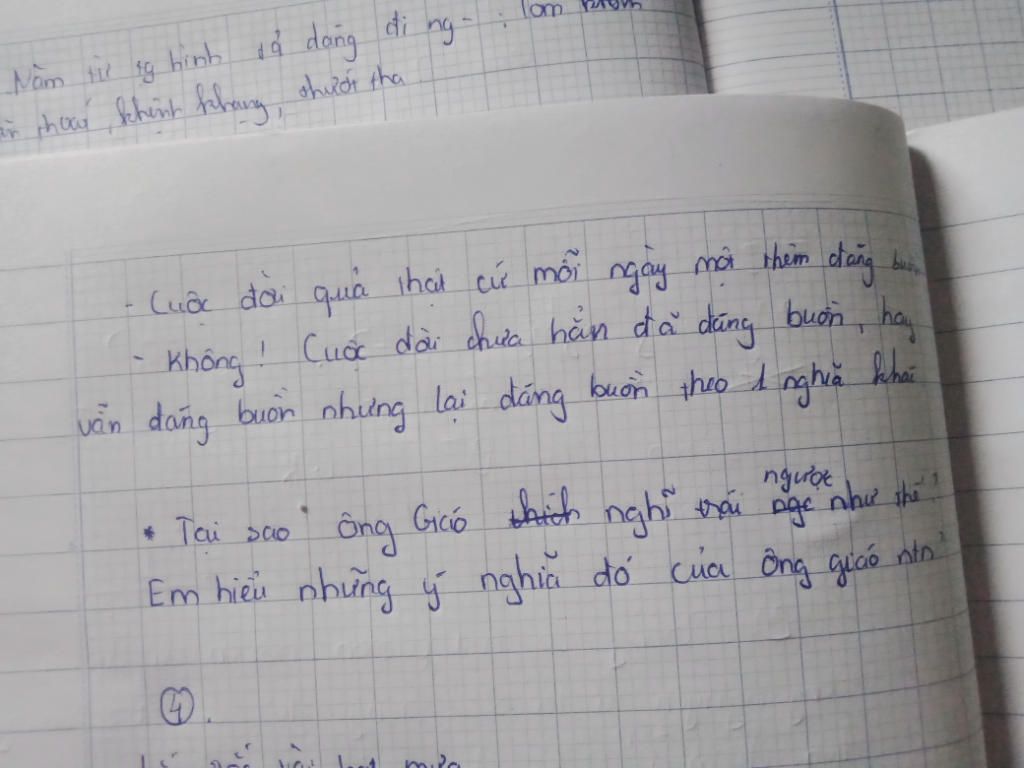 Năm từ tg hình tả dáng đi ng-:
thoát, khệnh khạng, thướt tha
- Cuộc đời quả thật cứ mỗi ngày một thêm đáng buồn
- Không! Cuộc đời chưa hẳn đã đáng buồn, hay
vẫn đáng buồn nhưng lại đáng buồn theo 1 nghĩa khác
ngược
* Tại sao ông Giáo thích nghĩ trái ngc như thế?
Em hiểu những ý nghĩa đó của ông giáo ntn?
④.